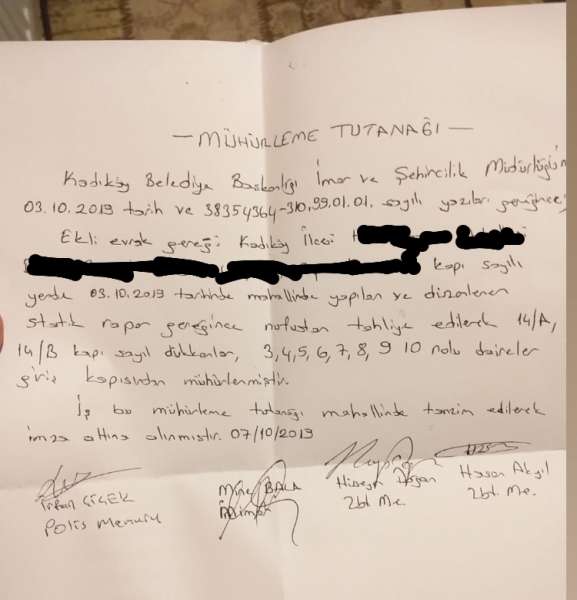 — MÜHÜRLEME TUTANAĞI —
Kadıköy Belediye Başkanlığı İmar ve Şehircilik Müdürlüğü'n
03.10.2019 tarih ve 38354364-310.99.01.01. sayılı yazıları gereğince;
Ekli evrak gereği Kadıköy İlcesi
kapı sayılı
yerde 03.10.2019 tarihinde mahallinde yapılan ve düzenlenen
statik rapor gereğince nufustan tahliye edilerek 14/A,
14/B kapı sayıl dükkanlar, 3,4,5,6,7,8,9 10 nolu daireler
giriş kapısından mühürlenmiştir.
İş bu mühürleme tutanağı mahallinde tanzim edilerek
imza altına alınmıştır. 07/10/2019
ÇİÇEK
Polis Memuru
Mine BALA
Mimar
Hüseyin Doğan
Zbt. Me.
Hasan Akgil
Zbt. Me.